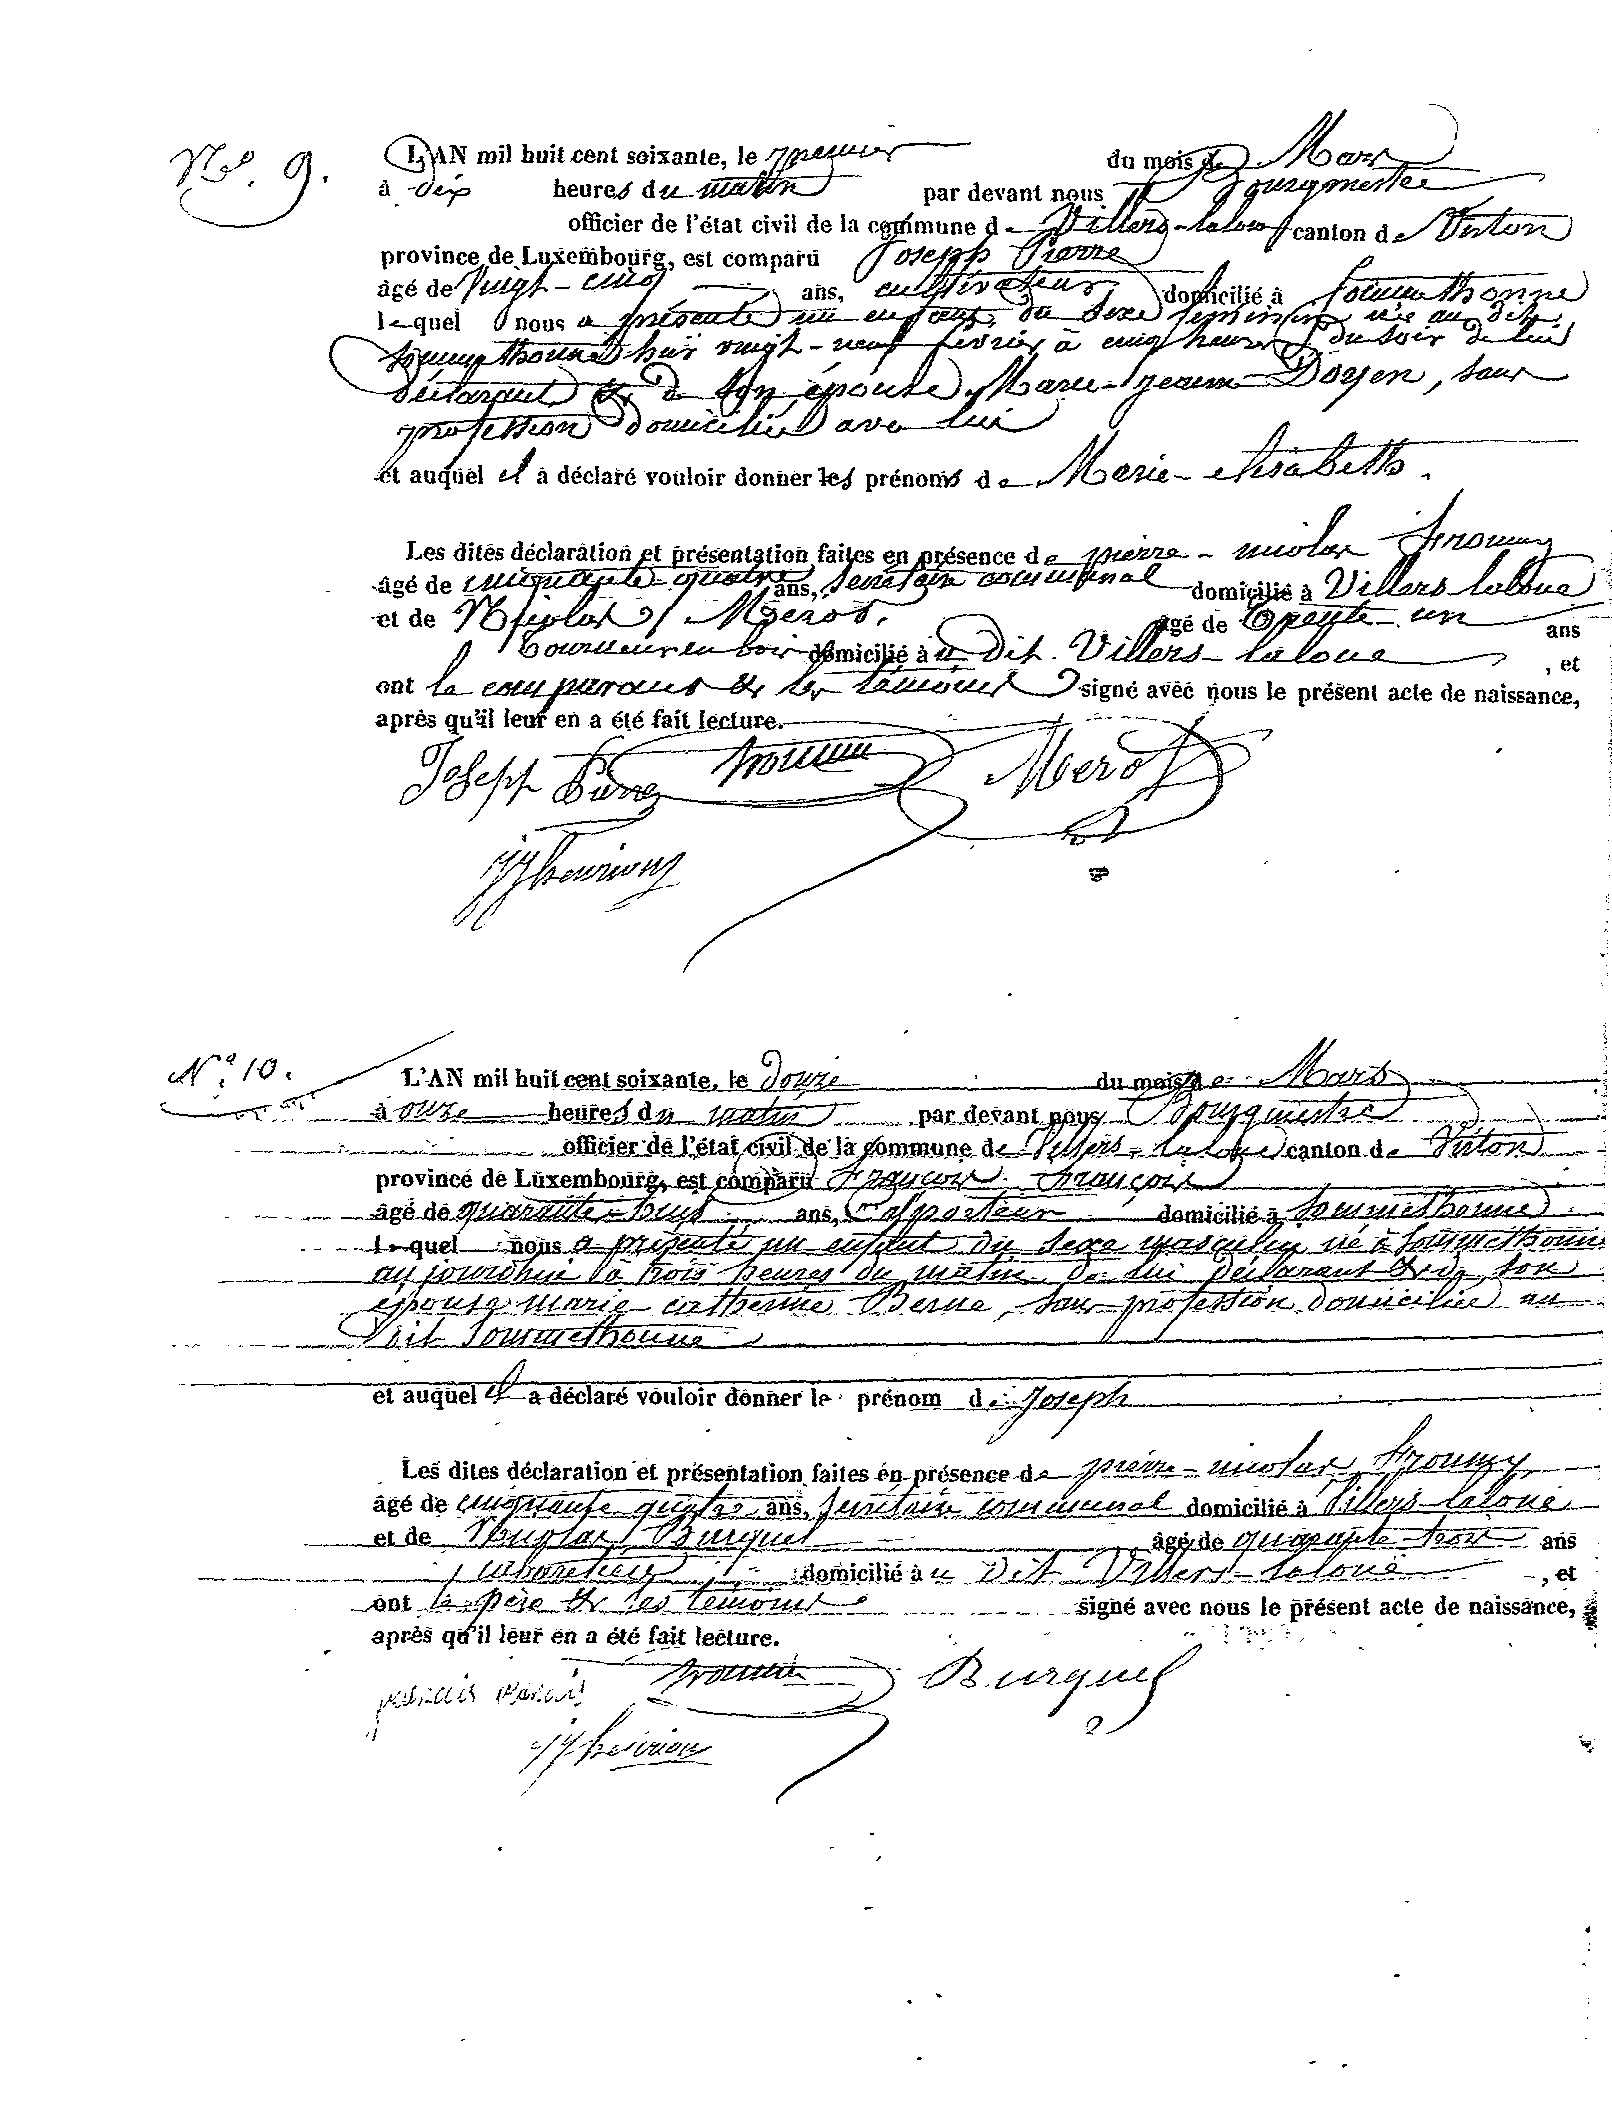 No. 9.
L'AN mil huit cent soixante, le premier du mois de Mars
à dix heures du matin par devant nous Bourgmestre
officier de l'état civil de la commune de Villers-laloue canton de Virton
province de Luxembourg, est comparu Joseph Pierre
âgé de vingt-cinq ans, cultivateur domicilié à Sommethonne
lequel nous a présenté un enfant du sexe féminin née au dit
Sommethonne hier vingt-neuf février à cinq heures du soir de lui
déclarant & de son épouse Marie-jeanne Doyen, sans
profession domiciliée avec lui
et auquel il a déclaré vouloir donner les prénoms de Marie-elisabeth.
Les dites déclaration et présentation faites en présence de pierre-nicolas
âgé de cinquante-quatre ans, secrétaire communal domicilié à Villers-laloue
et de Nicolas Merot, âgé de trente-un ans
tourneur en bois domicilié au dit Villers-laloue, et
ont le comparant & les témoins signé avec nous le présent acte de naissance,
après qu'il leur en a été fait lecture.
Joseph Pierre Merot
No. 10.
L'AN mil huit cent soixante, le douze du mois de Mars
à onze heures du matin par devant nous Bourgmestre
officier de l'état civil de la commune de Villers-laloue canton de Virton
province de Luxembourg, est comparu François François
âgé de quarante-huit ans, Colporteur domicilié à Sommethonne
lequel nous a présenté un enfant du sexe masculin né à Sommethonne
aujourdhui à trois heures du matin de lui déclarant & de son
épouse marie-catherine Berne, sans profession domiciliée au
dit Sommethonne
et auquel il a déclaré vouloir donner le prénom de Joseph
Les dites déclaration et présentation faites en présence de pierre-nicolas
âgé de cinquante quatre ans, secrétaire communal domicilié à Villers-laloue
et de Nicolas Burquel âgé de quarante-trois ans
cabaretier domicilié au dit Villers-laloue, et
ont le père & les témoins signé avec nous le présent acte de naissance,
après qu'il leur en a été fait lecture.
Burquel